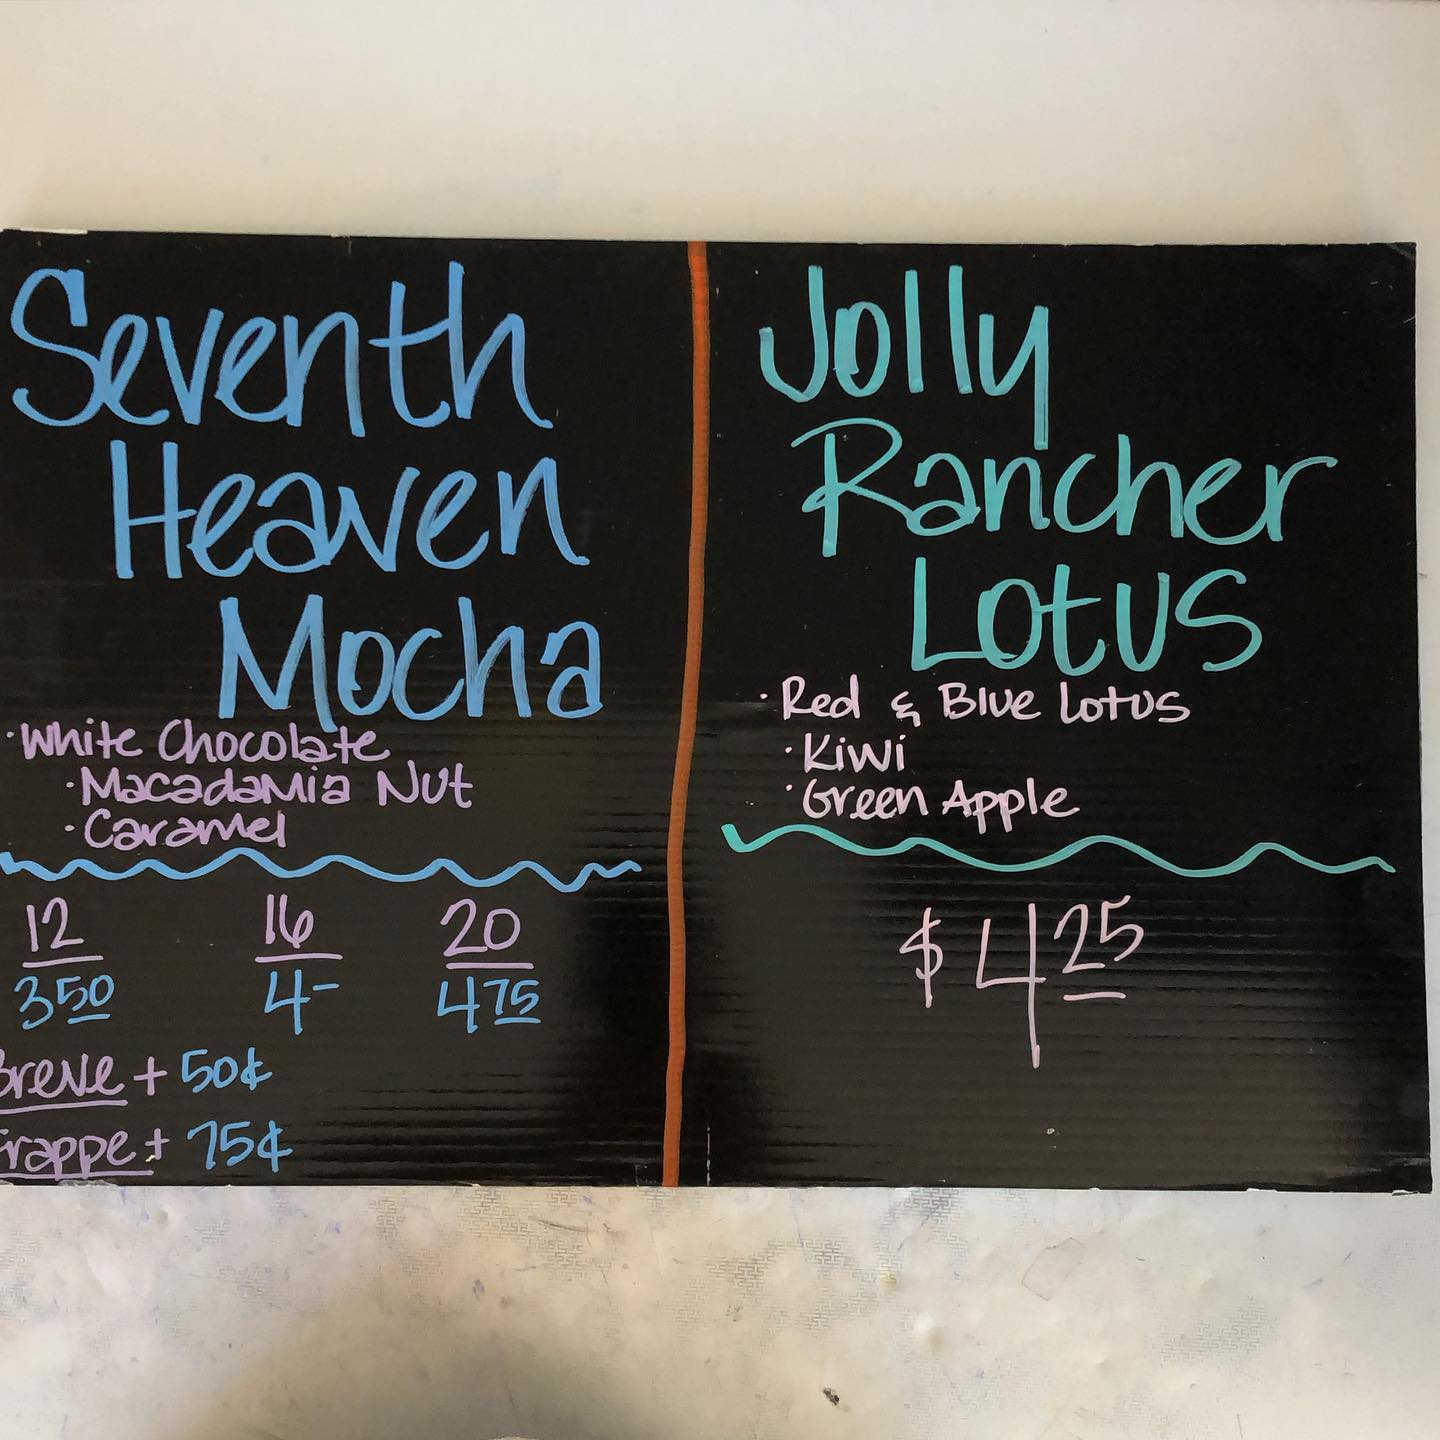 Seventh
Heaven
Mocha
·White Chocolate
·Macadamia Nut
·Caramel
12 16 20
3 50 4- 4 75
Breve + 50¢
Frappe + 75¢
Jolly
Rancher
Lotus
·Red & Blue Lotus
·Kiwi
·Green Apple
$4 25